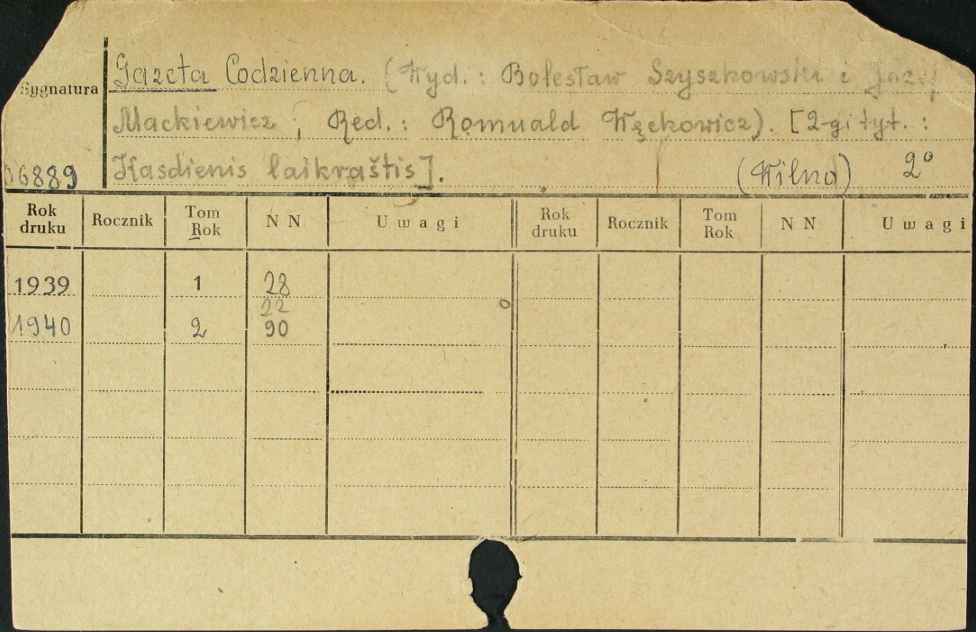 Gazeta Codzienna. (Wyd.: Bolesław Szyszkowski i Józef
Sygnatura
Mackiewicz, Red.: Romuald Węckowicz). [2-gi tyt.:
6889 Kasdienis laikraštis]. (Wilno) 2°
Rok druku Rocznik Tom Rok N N Uwagi Rok druku Rocznik Tom Rok N N Uwagi
1939 1 28
22
1940 2 90